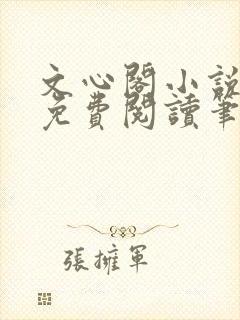 文心閣小說
免費閱讀筆
張擁軍